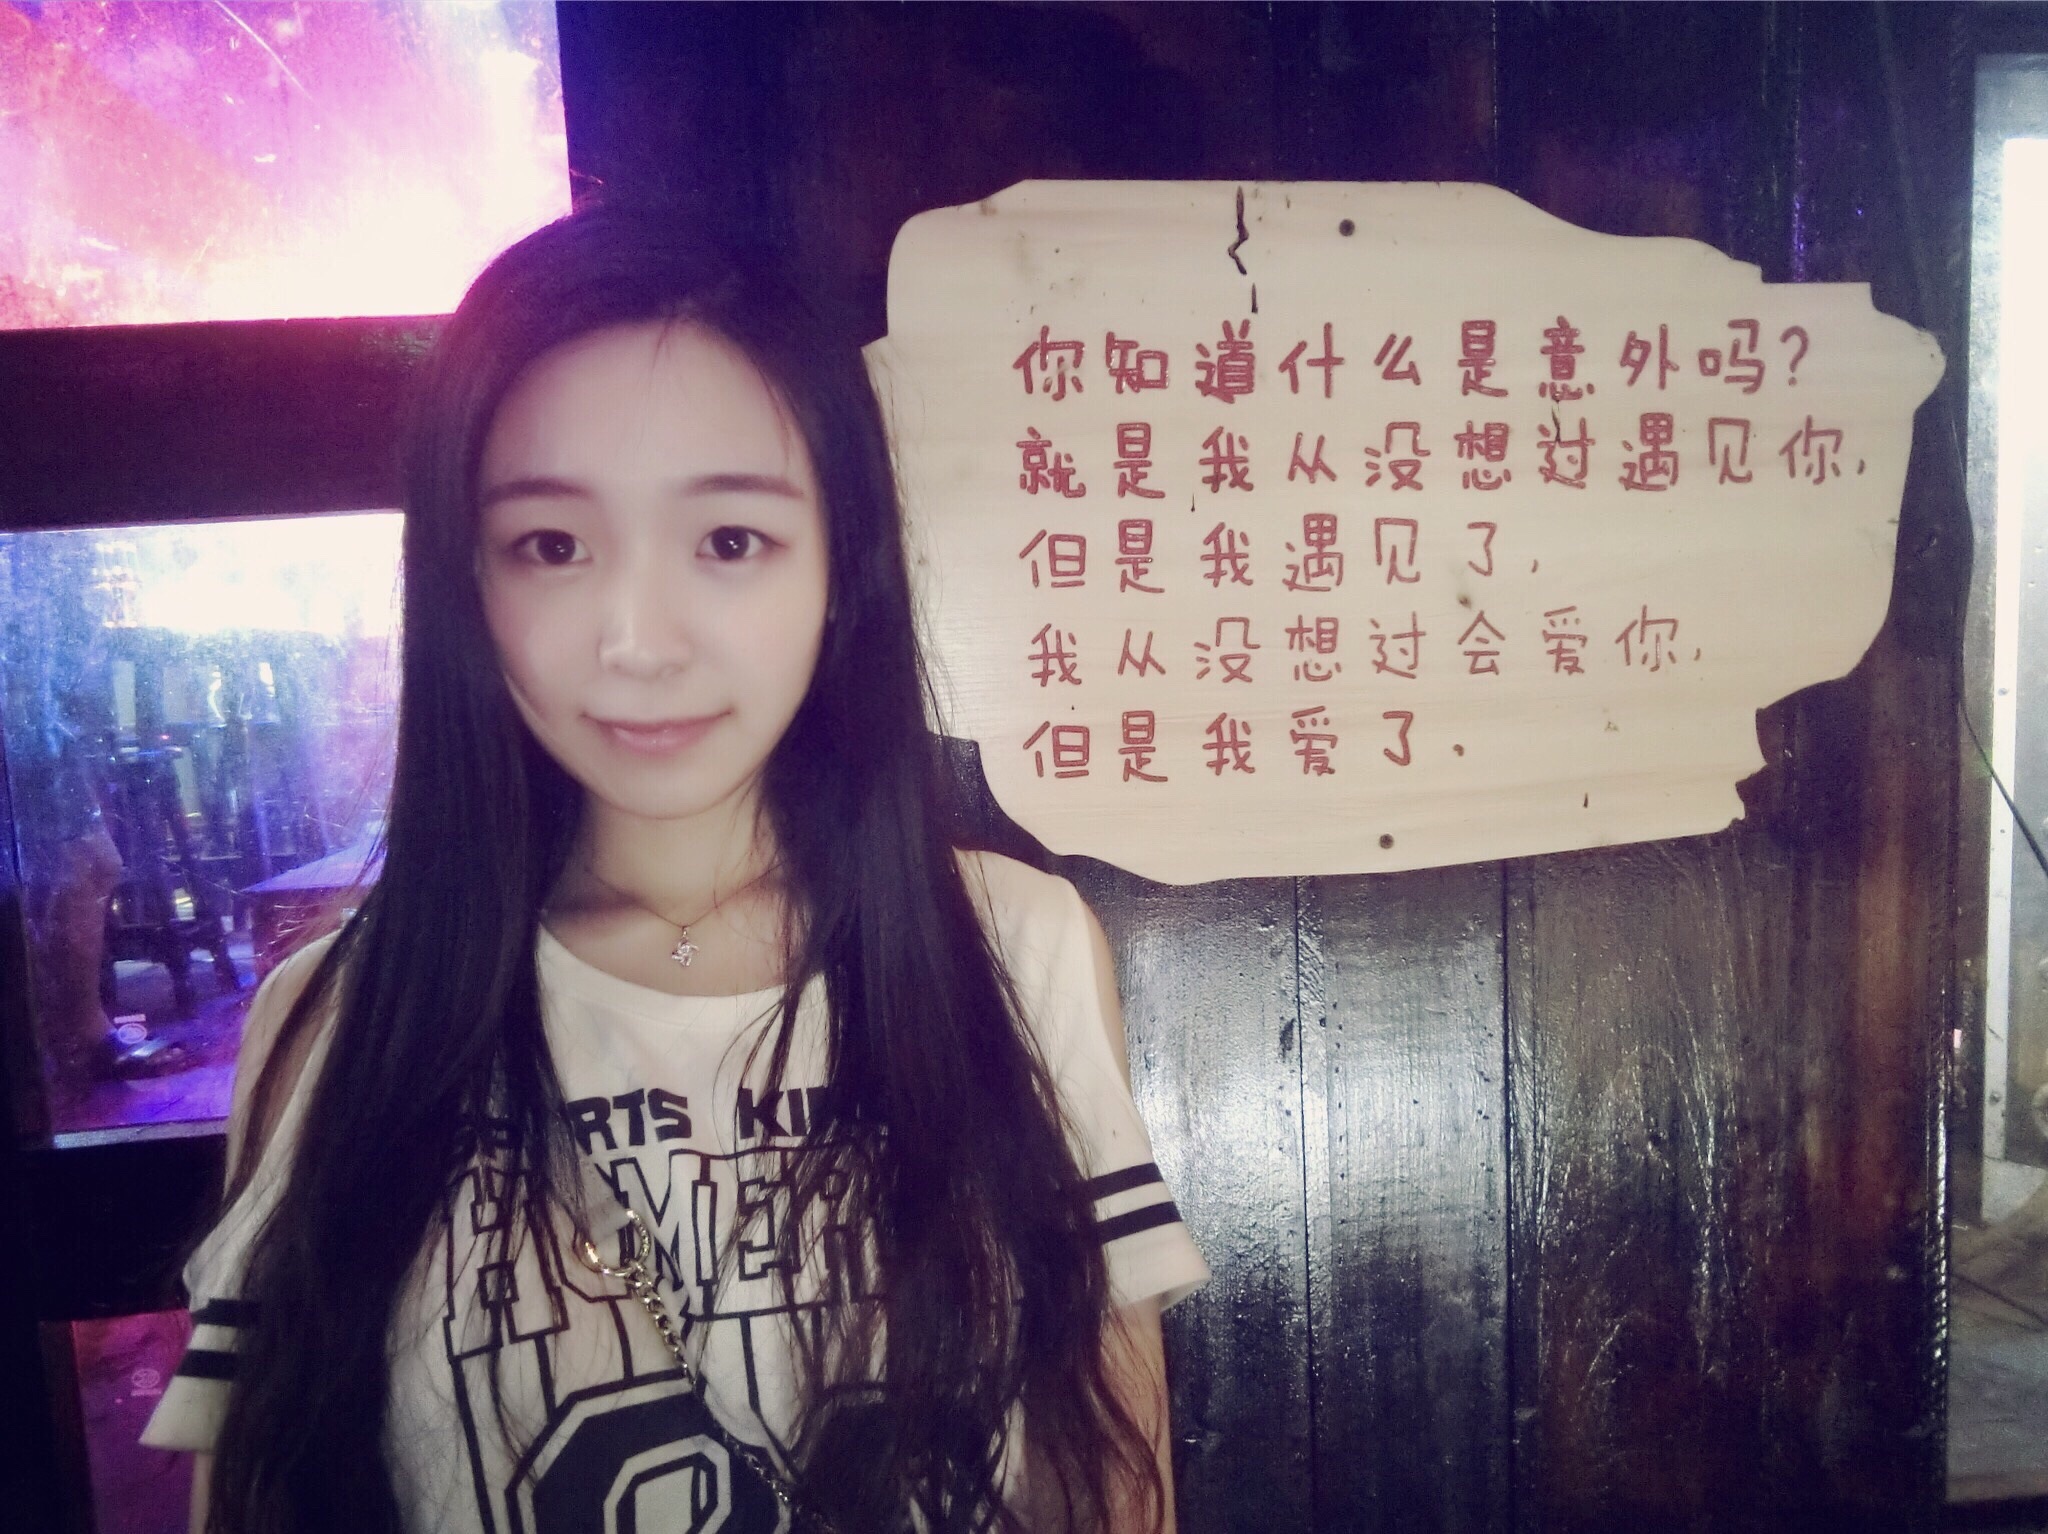 你知道什么是意外吗?
就是我从没想过遇见你,
但是我遇见了,
我从没想过会爱你,
但是我爱了.
RTS